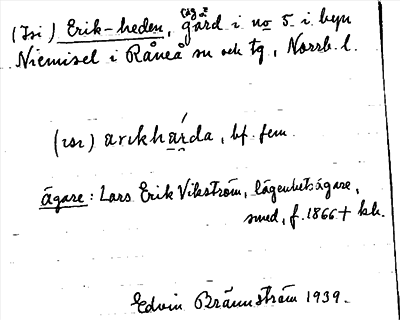 (Isi) Erik-heden, gård i no 5 i byn
Niemisel i Råneå sn och tg, Norrb. l.
(ısı) arıkhárda, bf. fem.
ägare: Lars Erik Vikström, lägenhetsägare,
smed, f. 1866 +
Edvin Brännström 1939.